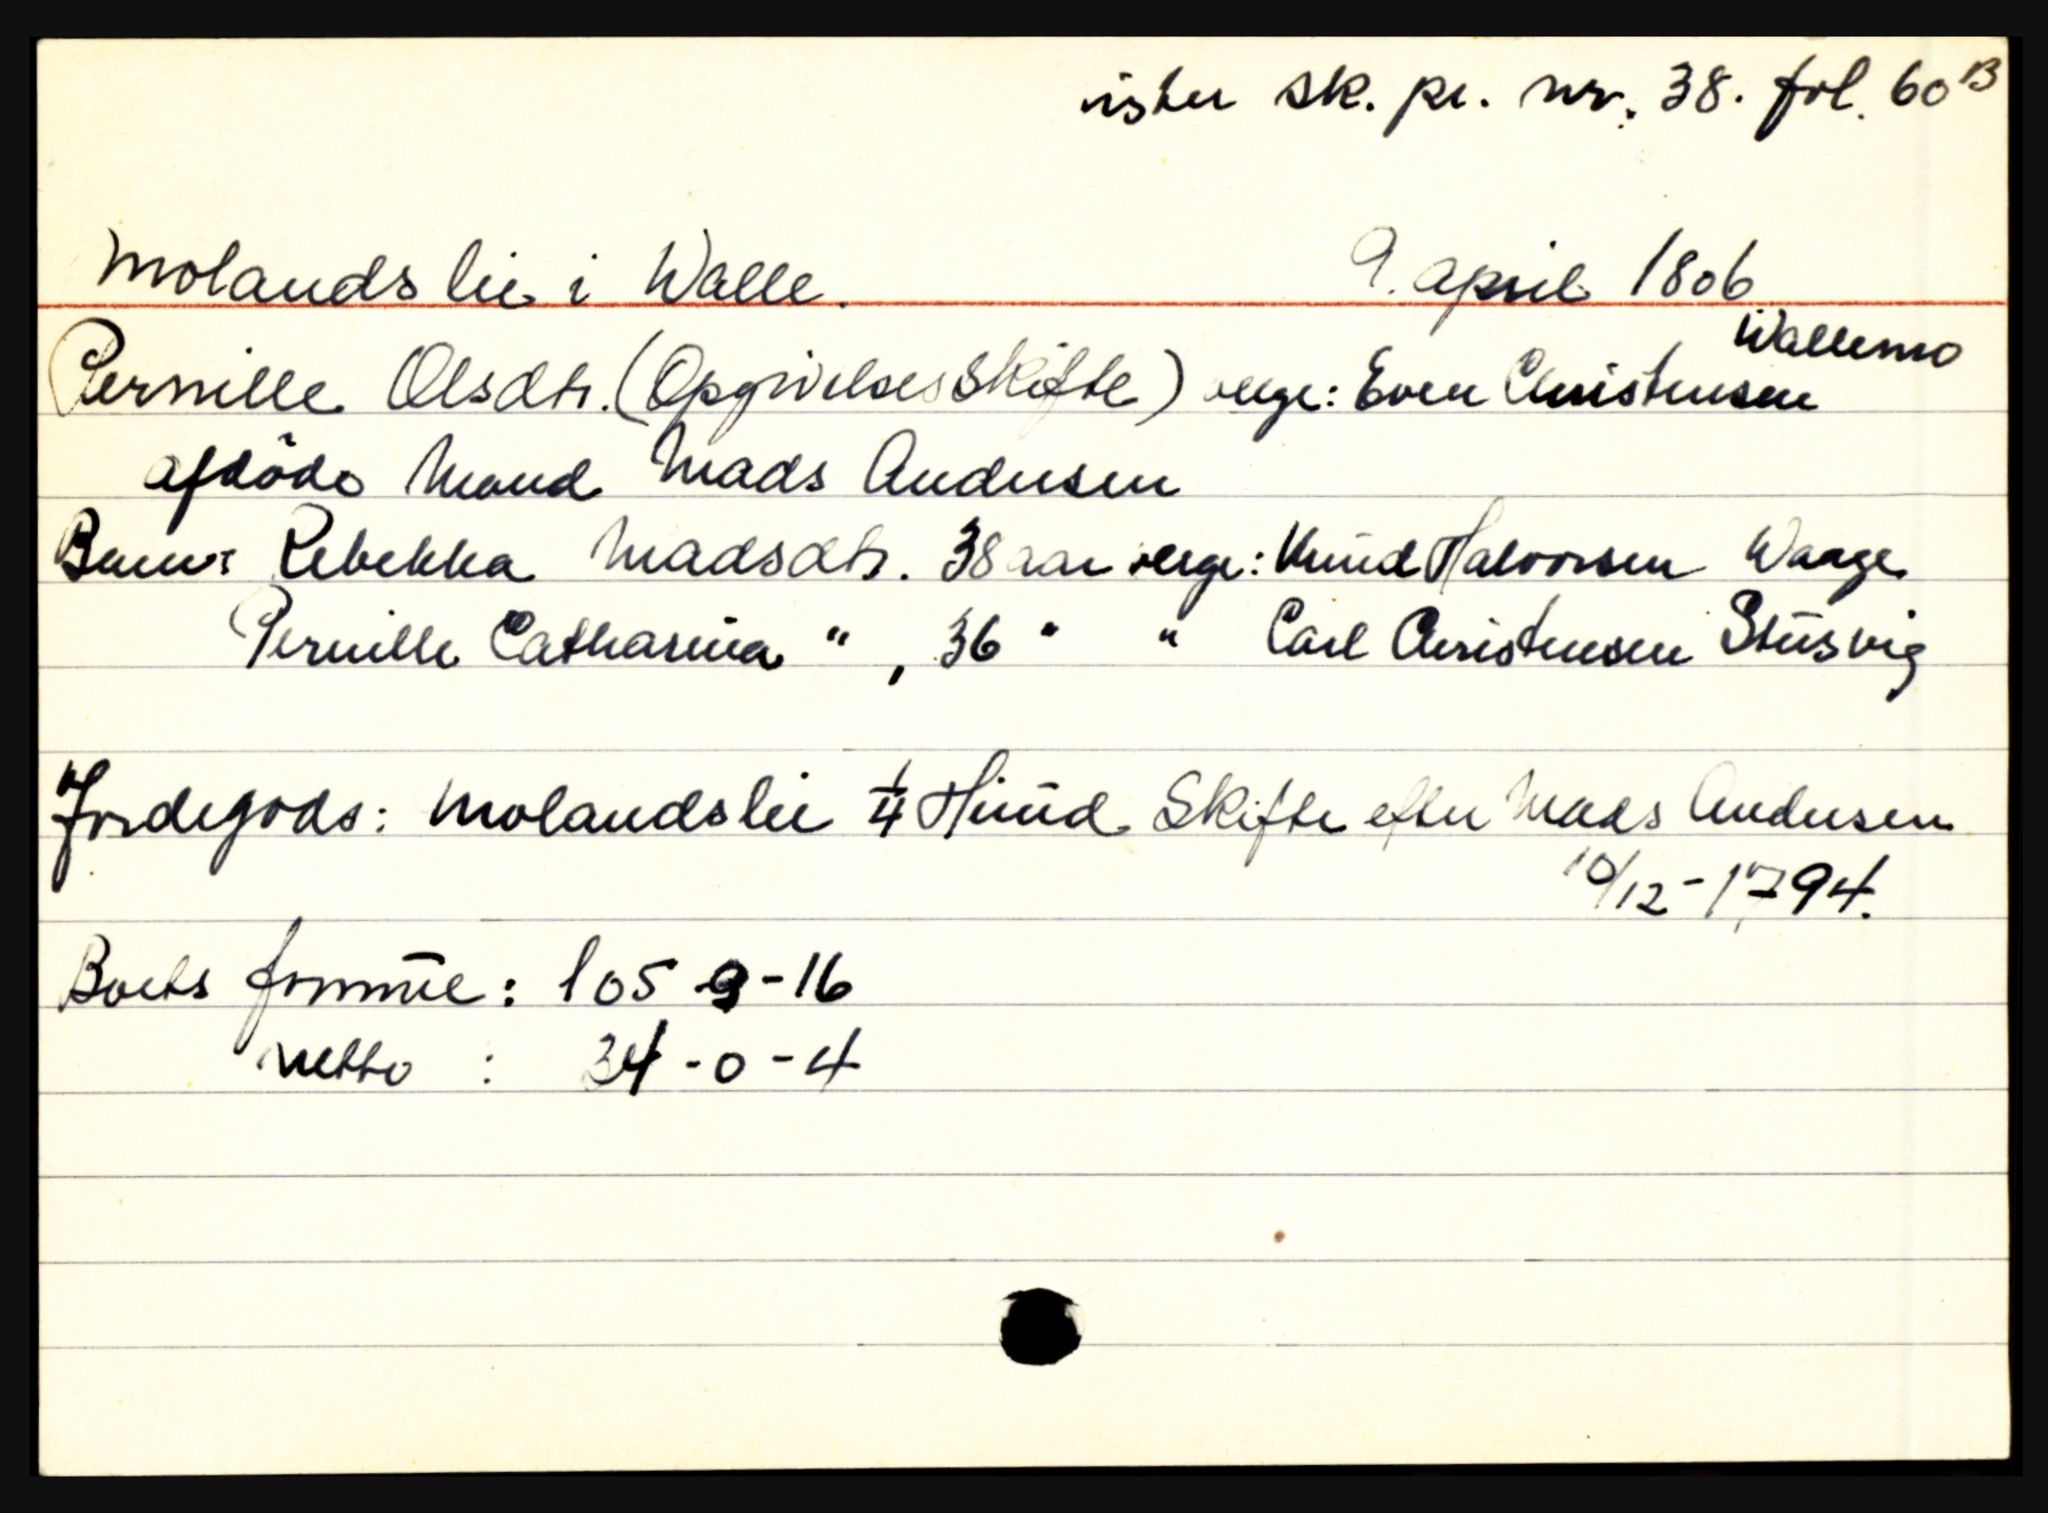 ister sk. pr. nr. 38. fol. 60 B
Molandslie i Walle. 9. april 1806
Wallemo
Pernille Olsdtr. (Opgivelsesskifte) verge: Even Christensen
afdöde Mand Mads Andersen
Børn: Rebekka Madsdtr. 38 aar verge: Knud Halvorsen Waage
Pernille Catharina " , 36 " " Carl Christensen Stusvig
Jordegods: Molandslie 1/4 Hud Skifte efter Mads Andersen
10/12-1794.
Boets formue: 105-3-16
netto : 34-0-4